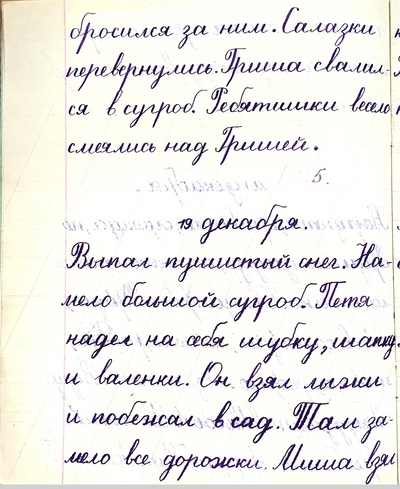 бросился за ним. Салазки
перевернулись. Гриша свалил-
ся в сугроб. Ребятишки весело
смеялись над Гришей.
5.
19 декабря.
Выпал пушистый снег. На-
мело большой сугроб. Петя
надел на себя шубку, шапку
и валенки. Он взял лыжи
и побежал в сад. Там за-
мело все дорожки. Миша взял